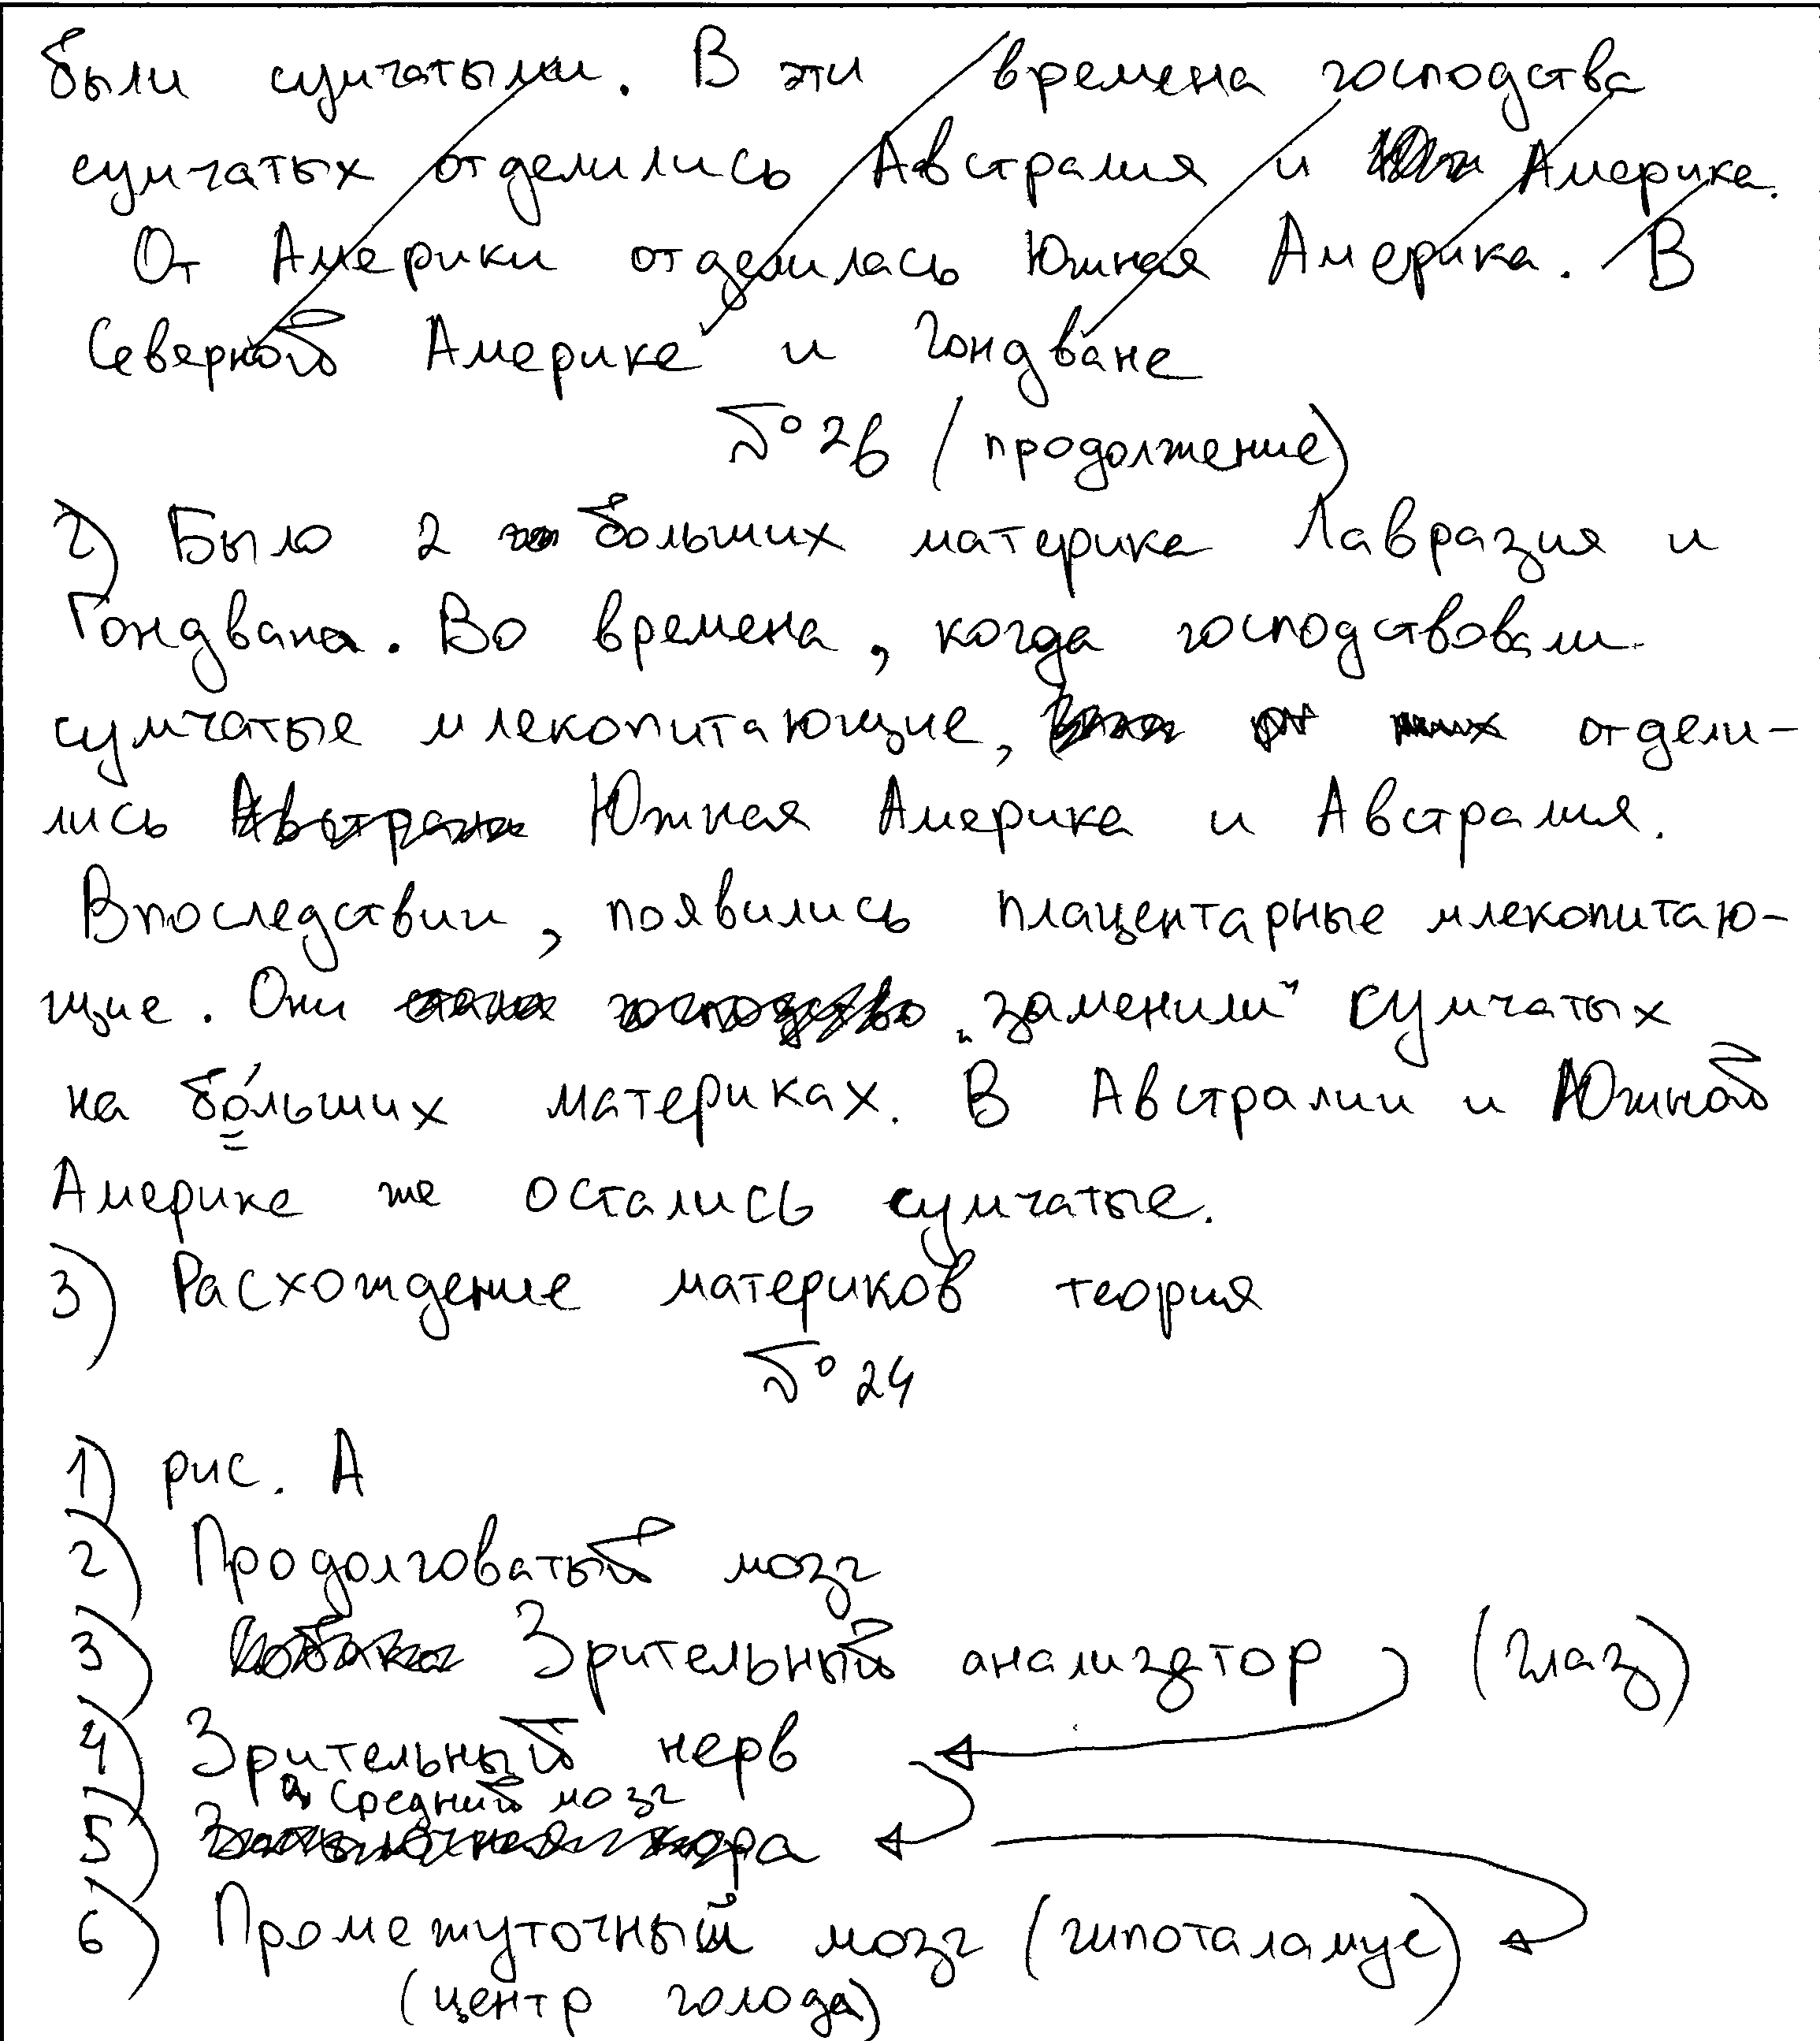 были сумчатыми. В эти времена господства
сумчатых отделились Австралия и Америка.
От Америки отделилась Южная Америка. В
Северной Америке и Гондване
№ 26 (продолжение)
2) Было 2 больших материка Лавразия и
Гондвана. Во времена, когда господствовали
сумчатые млекопитающие, отдели-
лись Австрали Южная Америка и Австралия.
Впоследствии, появились плацентарные млекопитаю-
щие. Они стали господство „заменили" сумчатых
на бо́льших материках. В Австралии и Южной
Америке же остались сумчатые.
3) Расхождение материков теория
№ 24
1) рис. А
2) Продолговатый мозг
3) Собака Зрительный анализатор (глаз)
4) Зрительный нерв
Средний мозг
5) Затылочная кора
6) Промежуточный мозг (гипоталамус)
(центр голода)